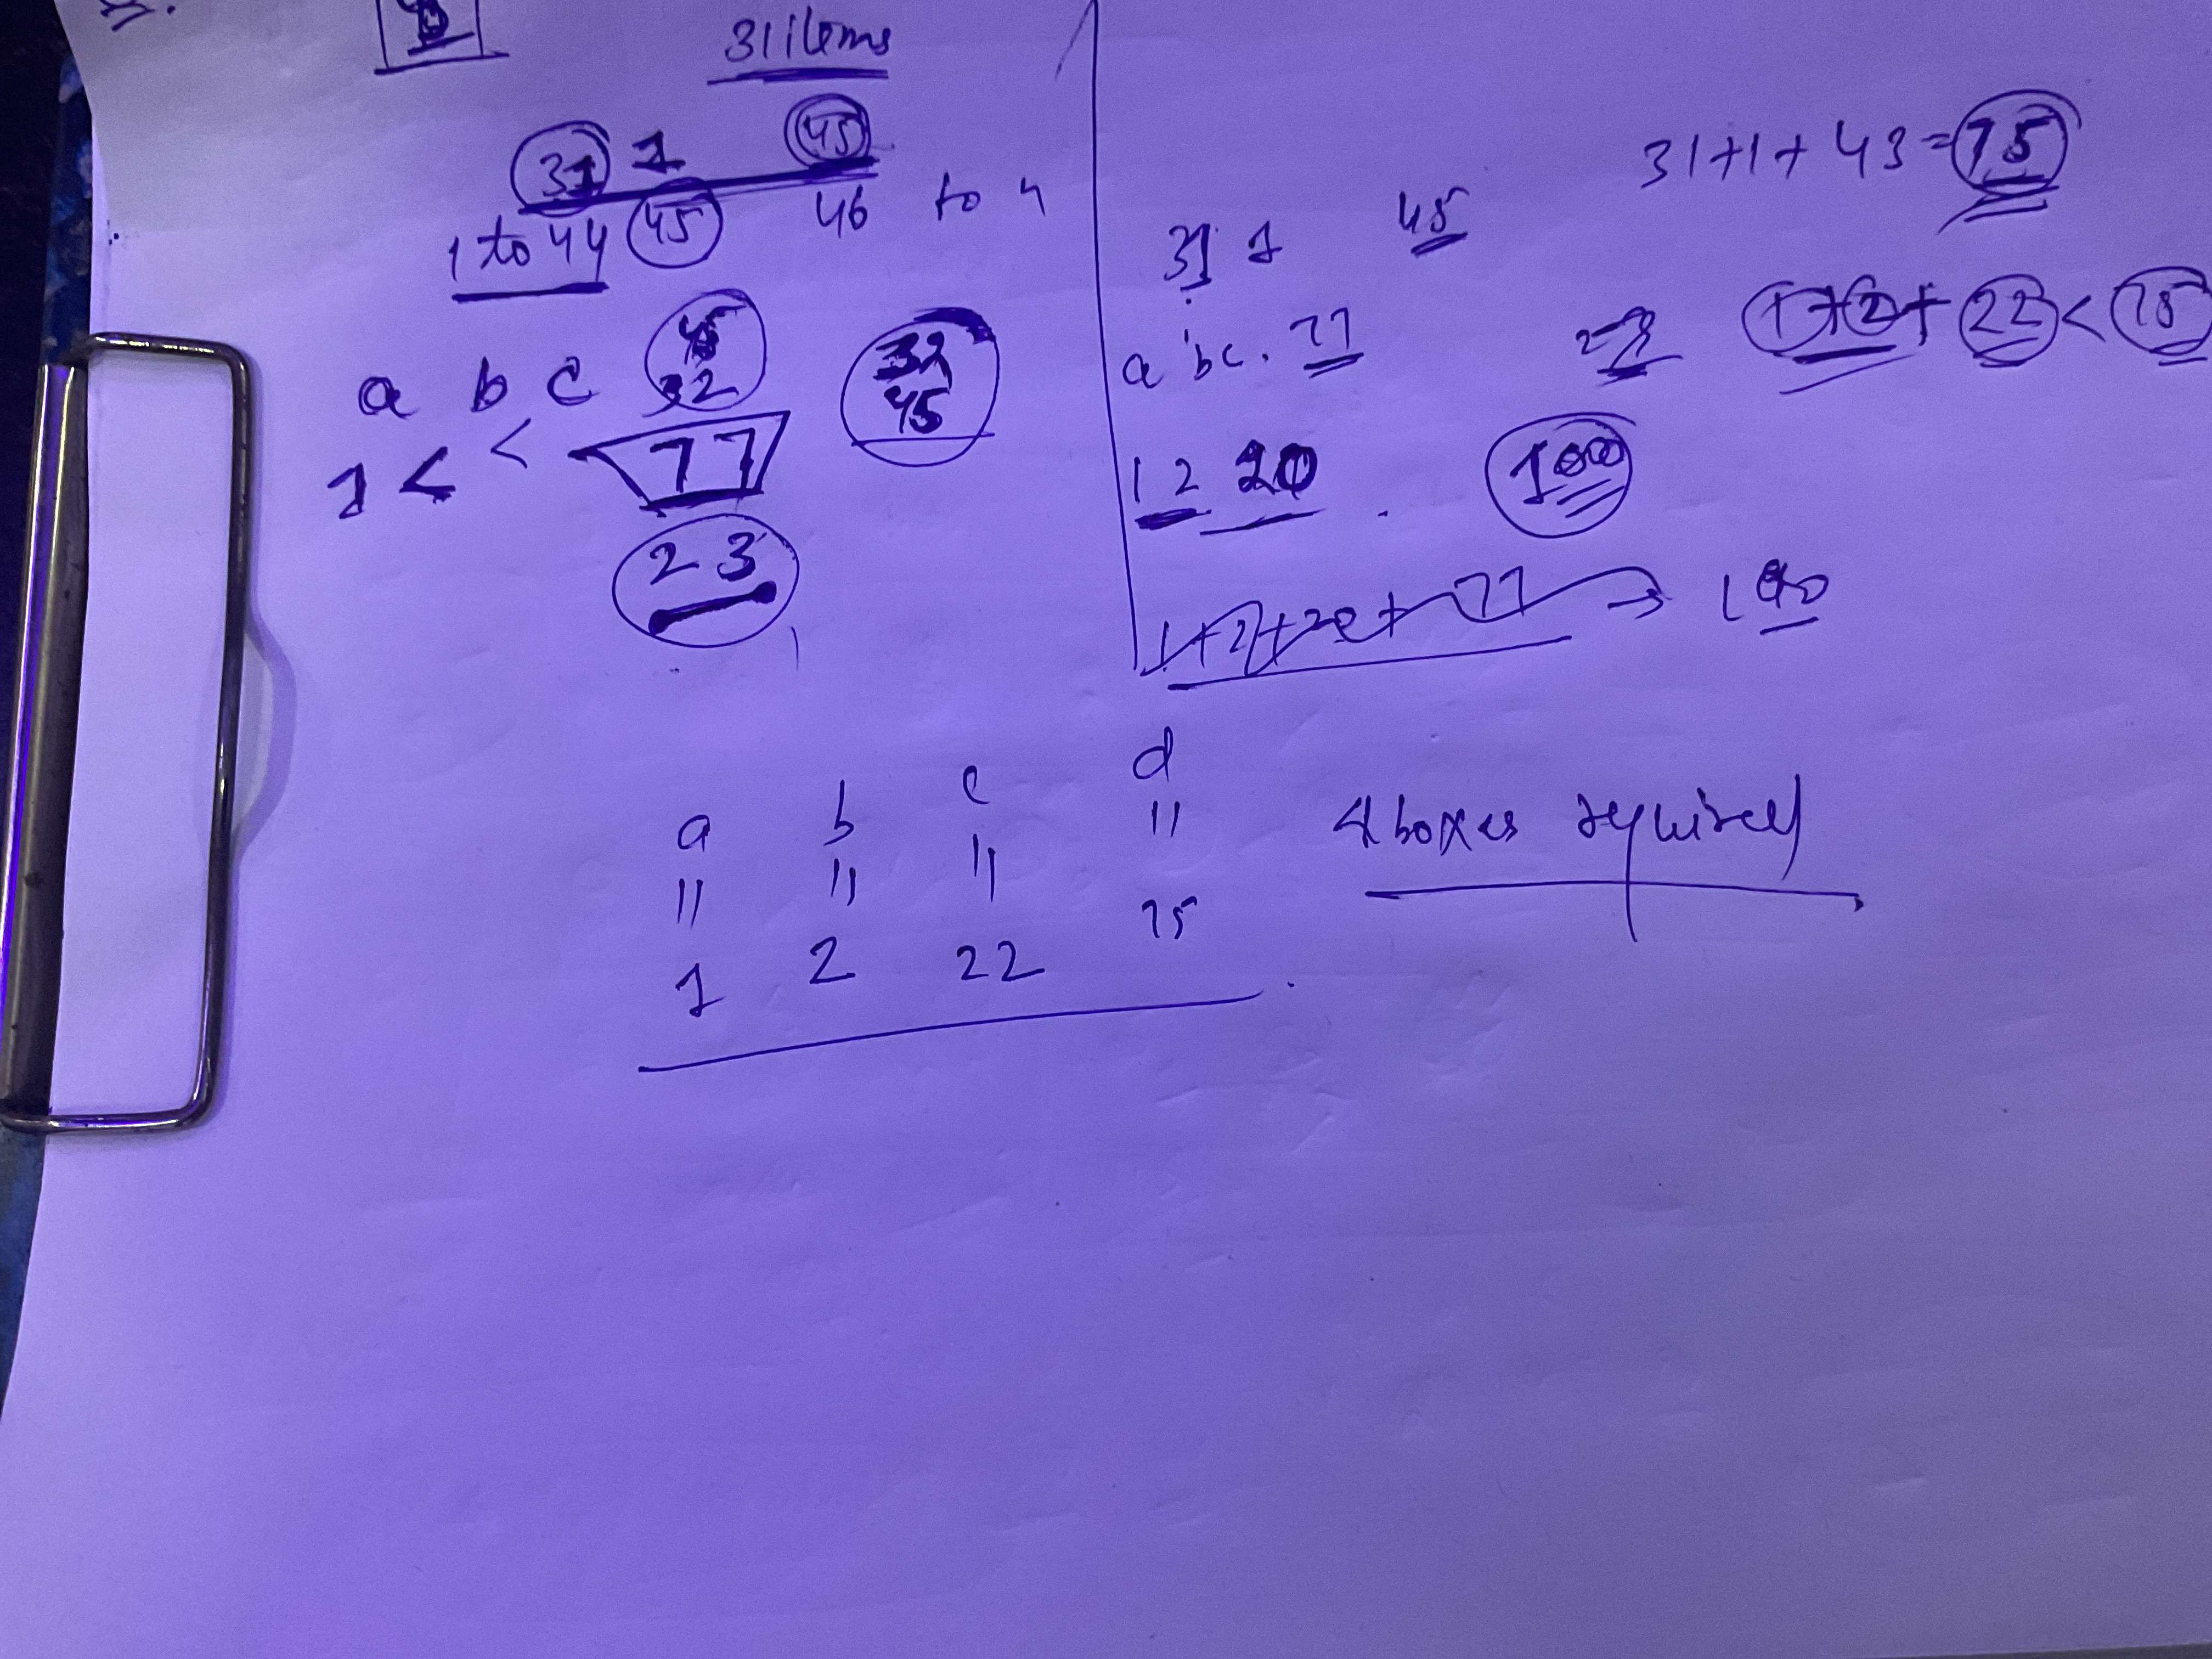 31 items
31 1 45
1 to 44 45 46 to n
a b c 45
32
32
45
1 < < 77
23
31+1+43=75
31 1 45
a b c. 77
1+2+22<75
1 2 20 . 100
1+2+20+77 → 100
a b c d
|| || || ||
1 2 22 75
4 boxes required